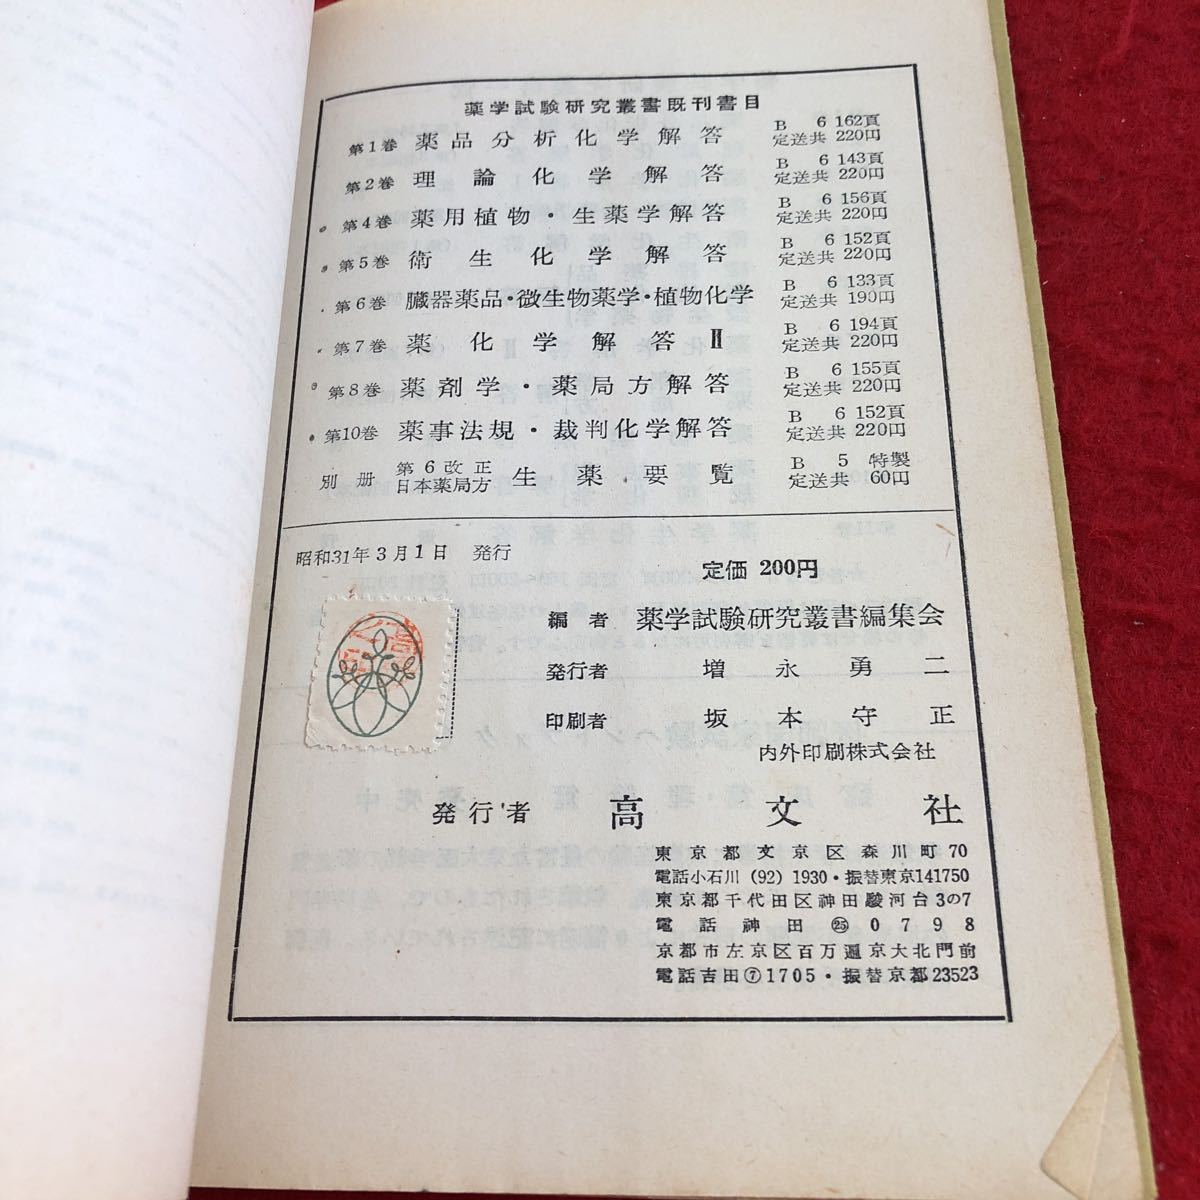 薬学試験研究叢書既刊書目
第1巻 薬品分析化学解答 B 6 162頁 定送共 220円
第2巻 理論化学解答 B 6 143頁 定送共 220円
第4巻 薬用植物・生薬学解答 B 6 156頁 定送共 220円
第5巻 衛生化学解答 B 6 152頁 定送共 220円
第6巻 臓器薬品・微生物薬学・植物化学 B 6 133頁 定送共 190円
第7巻 薬化学解答Ⅱ B 6 194頁 定送共 220円
第8巻 薬剤学・薬局方解答 B 6 155頁 定送共 220円
第10巻 薬事法規・裁判化学解答 B 6 152頁 定送共 220円
別冊 第6改正日本薬局方 生薬要覧 B 5 特製 定送共 60円
昭和31年3月1日 発行
定価 200円
編者 薬学試験研究叢書編集会
発行者 増永勇二
印刷者 坂本守正
内外印刷株式会社
発行者 高文社
東京都文京区森川町70
電話小石川(92)1930・振替東京141750
東京都千代田区神田駿河台3の7
電話神田㉕0798
京都市左京区百万遍京大北門前
電話吉田⑦1705・振替京都23523